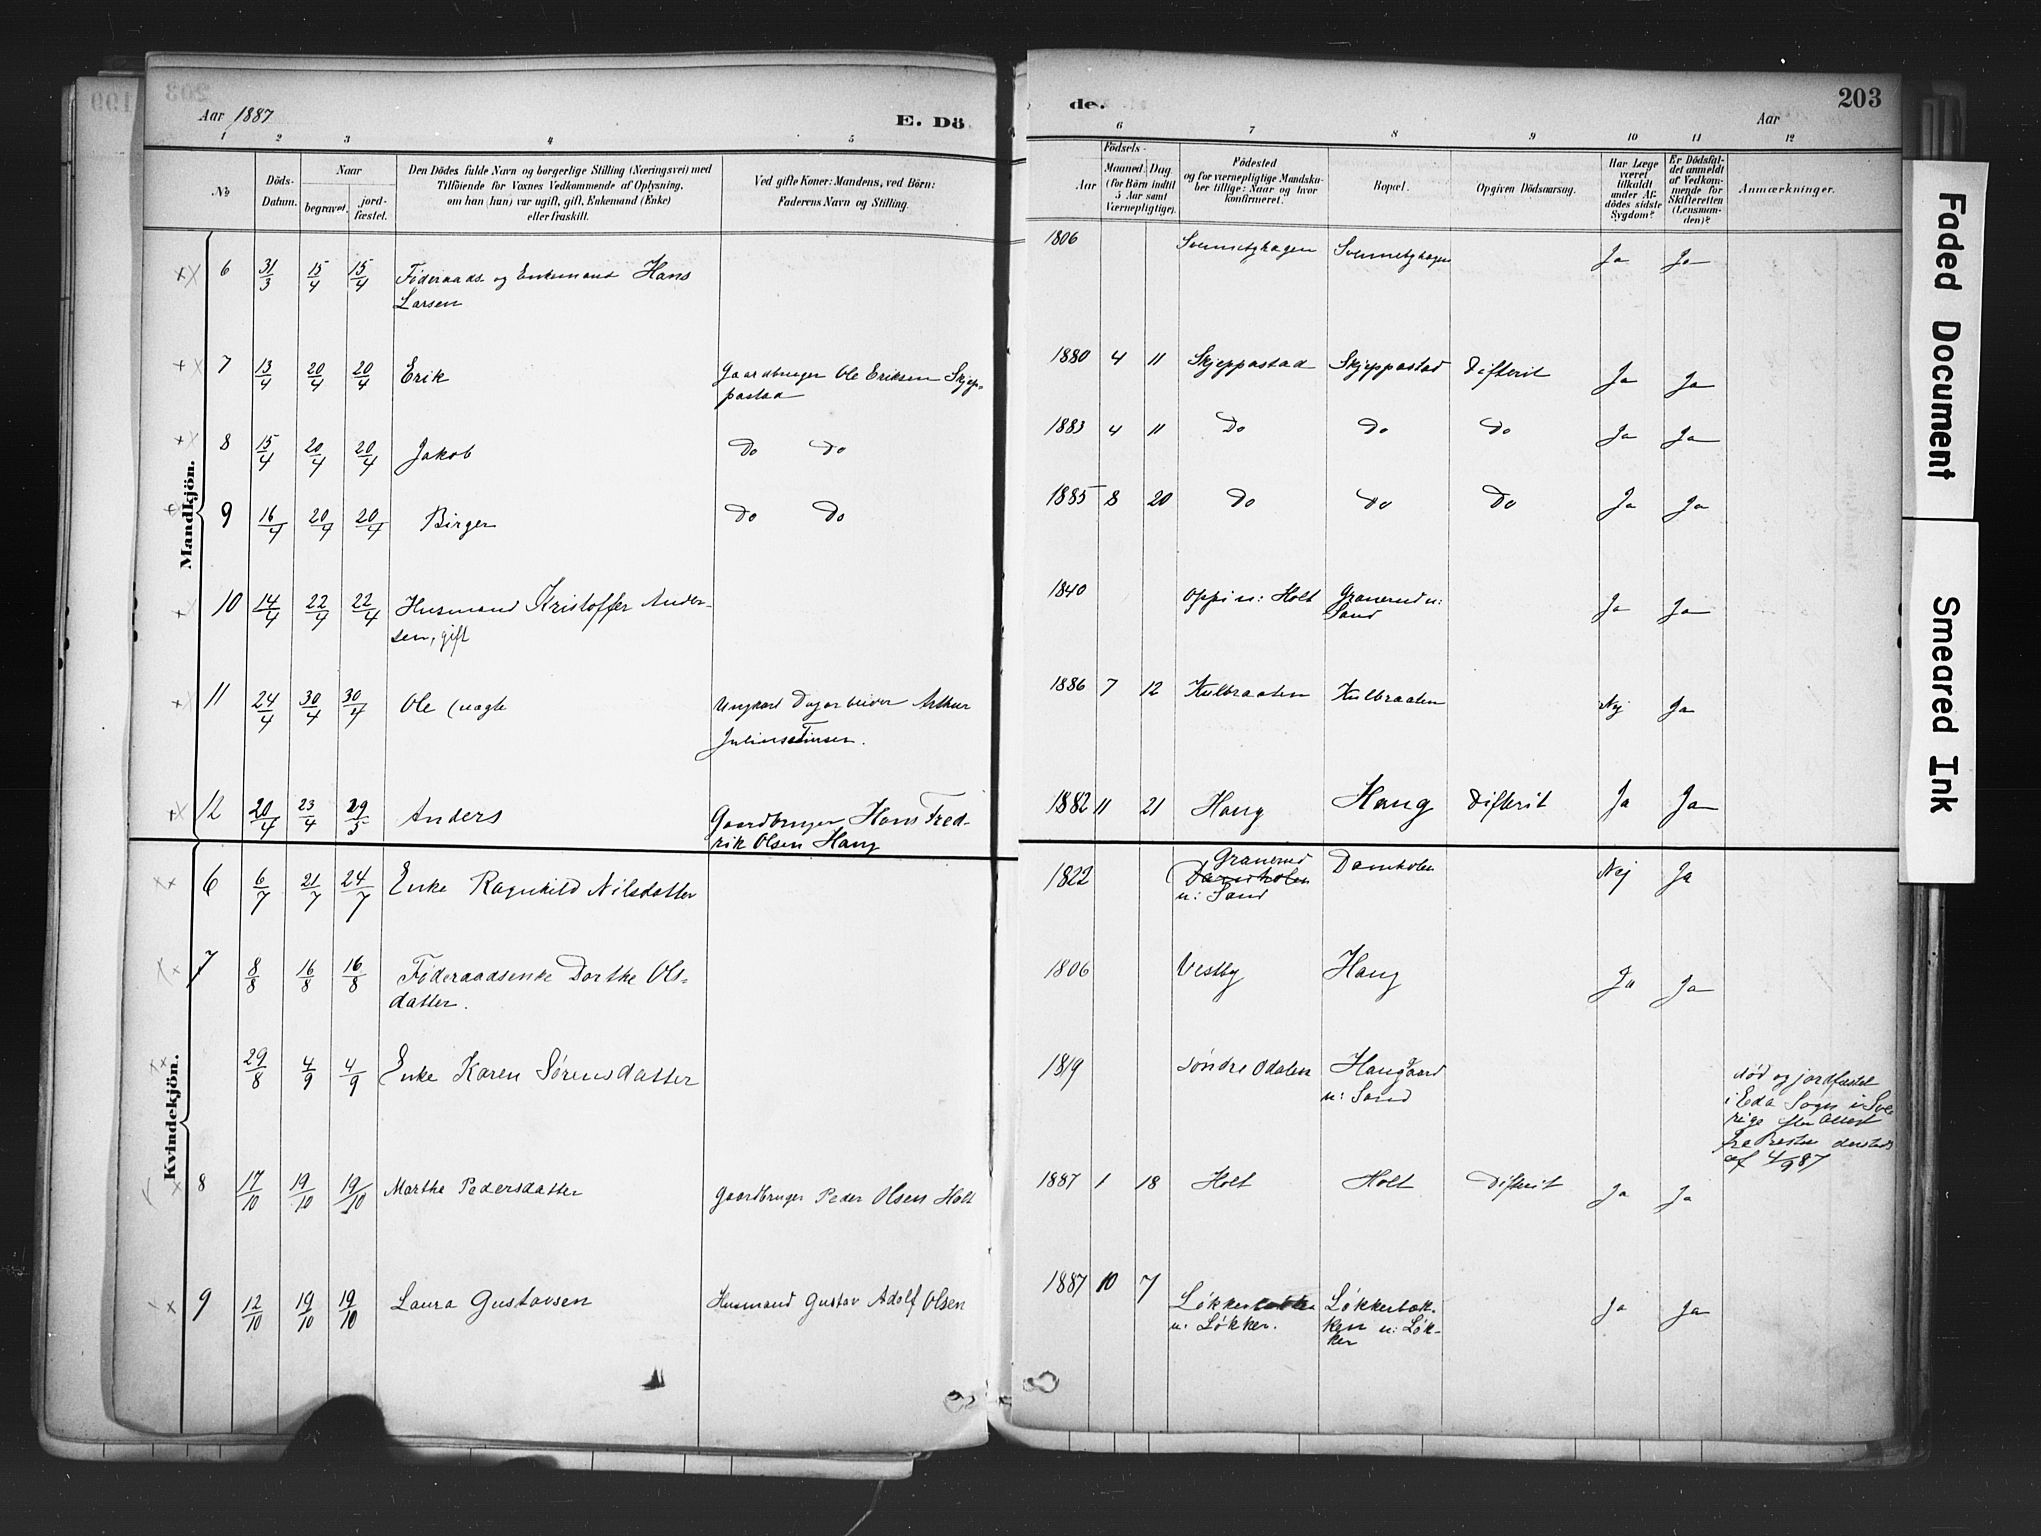 203
Aar 1887
E. Dö
de.
Aar
203
1 2 3 4 5 6 7 8 9 10 11 12
No
Döds-
Datum.
Naar
begravet.
jord-
fæstet.
Den Dödes fulde Navn og borgerlige Stilling (Næringsvei) med
Tilföiende for Voxnes Vedkommende af Oplysning,
om han (hun) var ugift, gift, Enkemand (Enke)
eller fraskilt.
Ved gifte Koner: Mandens, ved Börn:
Faderens Navn og Stilling.
Födsels-
Aar
Maaned. Dag.
(for Börn indtil
5 Aar samt
Værnepligtige).
Födested
og for værnepligtige Mandska-
ber tillige: Naar og hvor
konfirmeret.
Bopæl.
Opgiven Dödsaarsag.
Har Læge
været
tilkaldt
under Af-
dödes sidste
Sygdom?
Er Dödsfal-
det anmeldt
af Vedkom-
mende for
Skifteretten
(Lensman-
den)?
Anmærkninger.
Mandkjön.
6 31/3 15/4 15/4 Föderaads og Enkemand Hans
Larsen
1806 Ja Ja
7 13/4 20/4 20/4 Erik Gaardbruger Ole Eriksen Skjep-
pestad
1880 4 11 Skjeppastad Skjeppastad Difterit Ja Ja
8 15/4 20/4 20/4 Jakob Do Do 1883 4 11 Do Do Do Ja Ja
9 16/4 20/4 20/4 Birger Do Do 1885 8 20 Do Do Do Ja Ja
10 14/4 22/4 22/4 Husmand Kristoffer Ander-
sen, gift
1840 Oppi u: Holt Granerud u:
Sand
Ja Ja
11 24/4 30/4 30/4 Ole (uægte Ungkarl Dagarbeider Arthur
1886 7 12 Kulbraaten Kulbraaten Nej Ja
12 20/4 23/4 29/5 Anders Gaardbruger Hans Fred-
rik Olsen Haug
1882 11 21 Haug Haug Difterit Ja Ja
Kvindekjön.
6 6/7 21/7 24/7 Enke Ragnhild Nilsdatter
1822 Granerud
Damholen
u: Sand
Damholen Nej Ja
7 8/8 16/8 16/8 Föderaadsenke Dorthe Ols-
datter.
1806 Vestby Haug Ja Ja
29/8 4/9 4/9 Enke Karen Sørensdatter
1819 Søndre Odalen Haugaard
u: Sand
død og jordfæstet
i Eda Sogn i Sve-
rige efter Attest
fra Presten dersteds
af 4/9 87
8 17/10 19/10 19/10 Marthe Pedersdatter Gaardbruger Peder Olsen Holt
1887 1 18 Holt Holt Difterit Ja Ja
9 12/10 19/10 19/10 Laura Gustavsen Husmand Gustav Adolf Olsen
1887 10 7 u: Løkker. Løkkerbæk-
ken u: Løk-
ker
Ja Ja
Faded Document
Smeared Ink